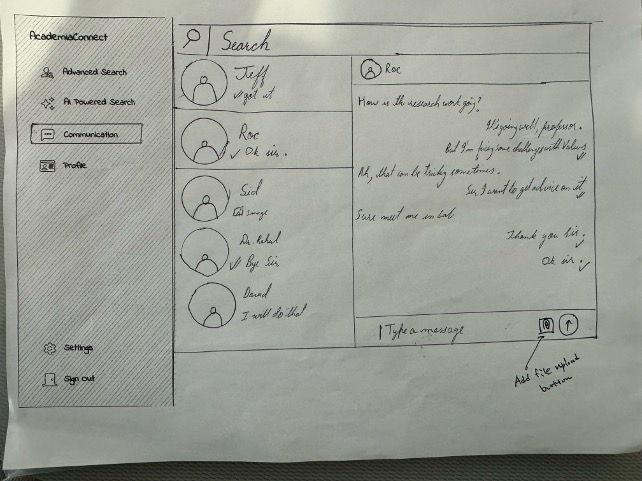 AcademiaConnect
Advanced Search
AI Powered Search
Communication
Profile
Settings
Sign out
Search
Jeff
got it
Roc
Ok sir.
Sid
Image
Dr. Rahul
Bye Sir
David
I will do that
Roc
How is the research work going?
It's going well, professor.
But I'm facing some challenges with Values
Ah, that can be tricky sometimes.
Sir, I want to get advice on it
Sure meet me in Lab
Thank you Sir.
Ok sir.
Type a message
Add file upload
button